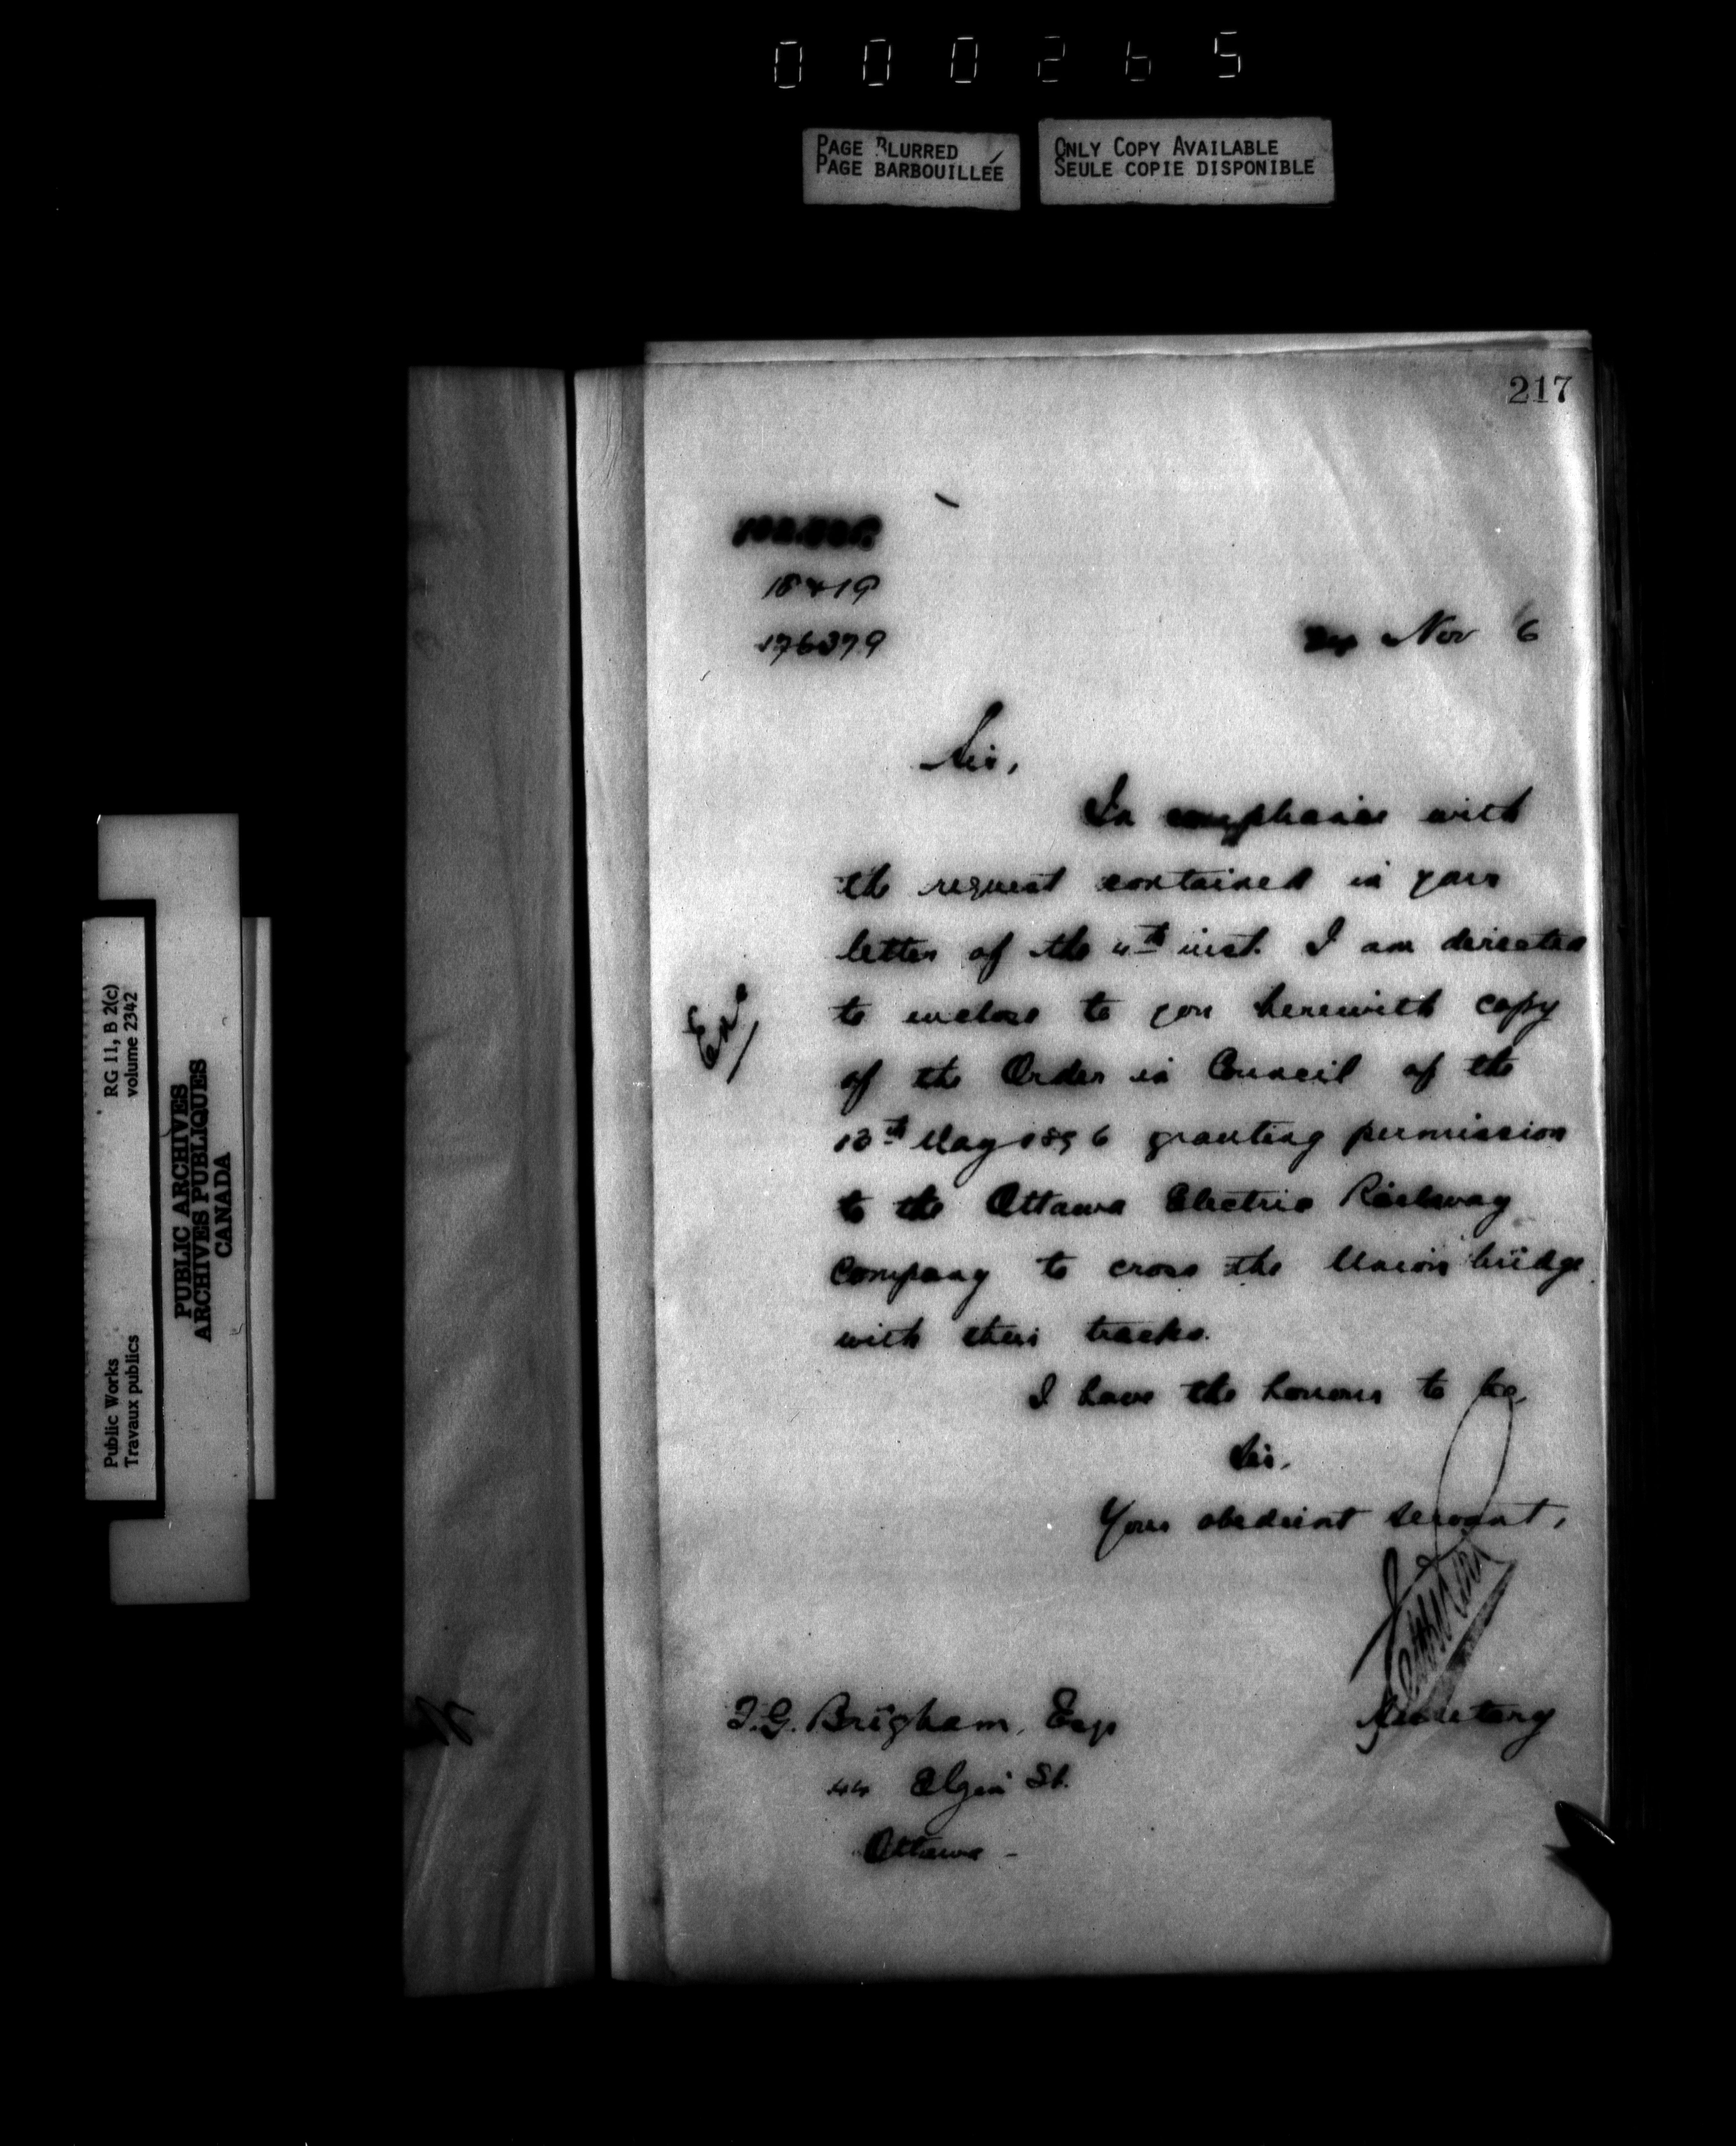 000265
PAGE BLURRED
PAGE BARBOUILLÉE
ONLY COPY AVAILABLE
SEULE COPIE DISPONIBLE
217
18419
176379
Nov 6
Sir,
In compliance with
the request contained in your
letter of the 4th inst. I am directed
Enc
to enclose to you herewith copy
of the Order in Council of the
13th May 1896 granting permission
to the Ottawa Electric Railway
Company to cross the Union bridge
with their tracks.
I have the honour to be,
Sir,
Your obedient servant,
Secretary
T.G. Brigham, Esq
44 Elgin St.
Ottawa -
RG 11, B 2(c)
volume 2342
Public Works
Travaux publics
PUBLIC ARCHIVES
ARCHIVES PUBLIQUES
CANADA